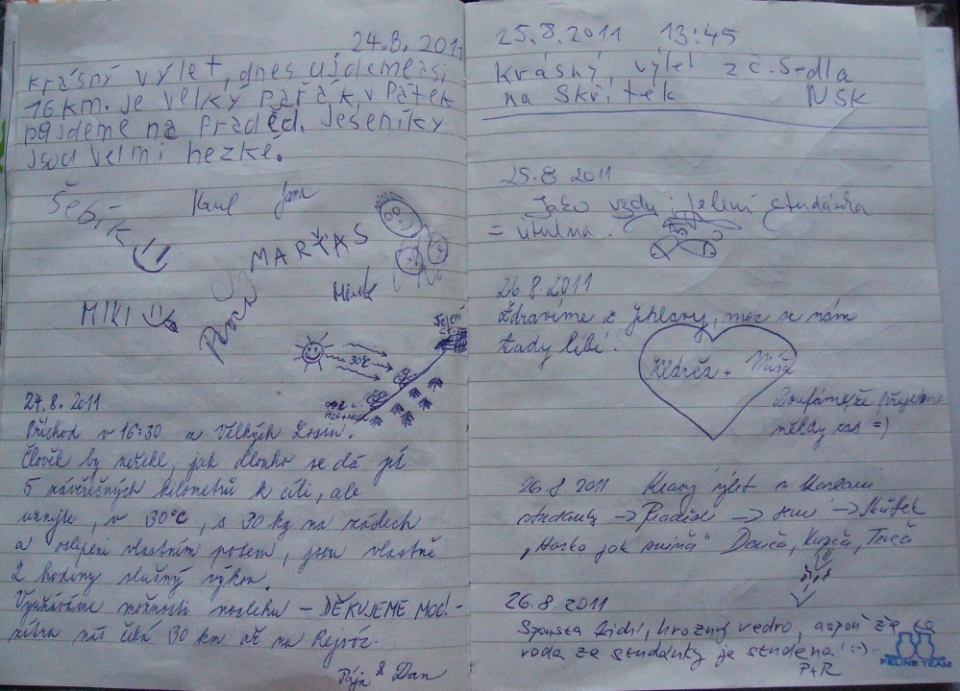 24.8. 2011
krásný výlet, dnes ujdeme asi
16 km. je velky pařák, v Pátek
pojdeme na Praděd. Jeseníky
jsou velmi hezké.
Šebík
Karel Jana
MARŤAS
MIKI
Mirek
Jelení
30°C
24.8. 2011
Příchod v 16:30 z Velkých Losin.
Člověk by neřekl, jak dlouho se dá jít
5 závěrečných kilometrů k cíli, ale
uznejte, v 30°C, s 30 kg na zádech
a oslepeni vlastním potem, jsou vlastně
2 hodiny slušný výkon.
Využíváme možnosti noclehu - DĚKUJEME MOC! -
zítra nás čeká 30 km až na Rejvíz.
Pája & Dan
25.8.2011 13:45
krásný, výlet z č. Sedla
na Skřítek NSK
25.8 2011
Jako vždy: Jelení studánka
= útulna.
26.8.2011
Zdravíme z Jihlavy, moc se nám
tady líbí.
+ Míša
Doufáme, že přijdeme
někdy zas =)
26.8.2011 výlet
studánky → Praděd → → Skřítek
"Horko jak " Terča
26.8.2011
Spousta lidí, hrozný vedro, aspoň že ta
voda ze studánky je studená! :-)
P+R
FELINE TEAM